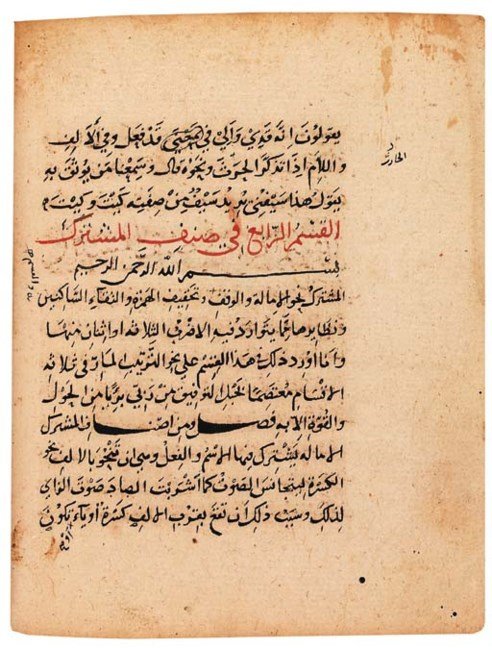 يقولون انه قدي والي في قد فعل وفي الالف
واللام اذا تذكر الحرث ونحوه قال وسمعنا من يوثق به
يقول هذا سيفني يريد سيف من صفته كيت وكيت
القسم الرابع في صنف المشترك
بسم الله الرحمن الرحيم
المشترك نحو الاماله والوقف وتخفيف الهمزة والتقاء الساكنين
ونظايرها مما يتوارد فيه الاضرب الثلاثه او اثنان منها
وانا اورد ذلك هذا القسم على نحو الترتيب المار في ثلاثه
الاقسام معتصما بحبل التوفيق من ربي بريا من الحول
والقوة الا به فصل ومن اصناف المشترك
الاماله يشترك فيها الاسم والفعل وهي ان تنحو بالالف نحو
الكسرة ليتجانس الصوت كما اشربت الصاد صوت الزاي
لذلك وسبب ذلك أن تقع بقرب الالف كسرة او ياء او تكون